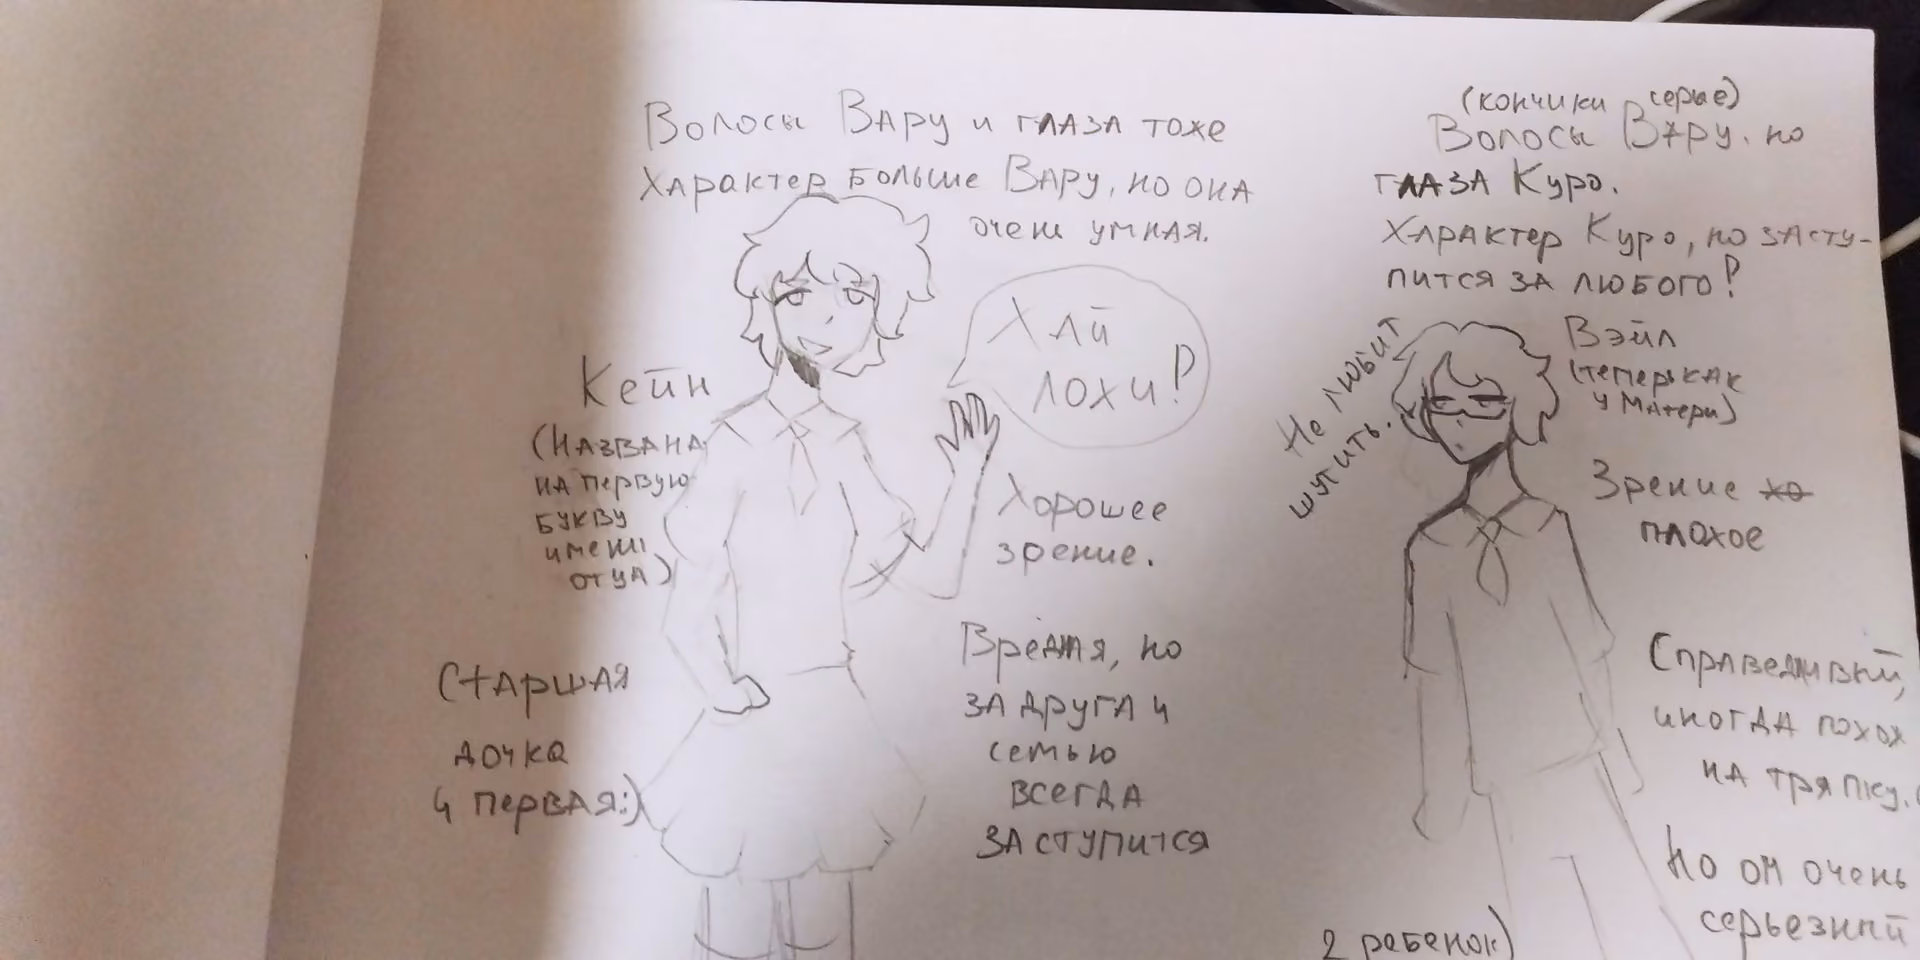 Волосы Вару и глаза тоже
Характер больше Вару, но она
очень умная.
Хай
лохи!
Кейн
(Названа
на первую
букву
имени
отца)
Хорошее
зрение.
Старшая
дочка
и первая:)
Вредная, но
за друга и
семью
всегда
заступится
(кончики серые)
Волосы Вару. но
глаза Куро.
Характер Куро, но засту-
пится за любого!
Не любит
шутить.
Вэйл
(теперь как
у матери)
Зрение хо
плохое
Справедливый,
иногда похож
на тряпку.
Но он очень
серьезный
2 ребенок)